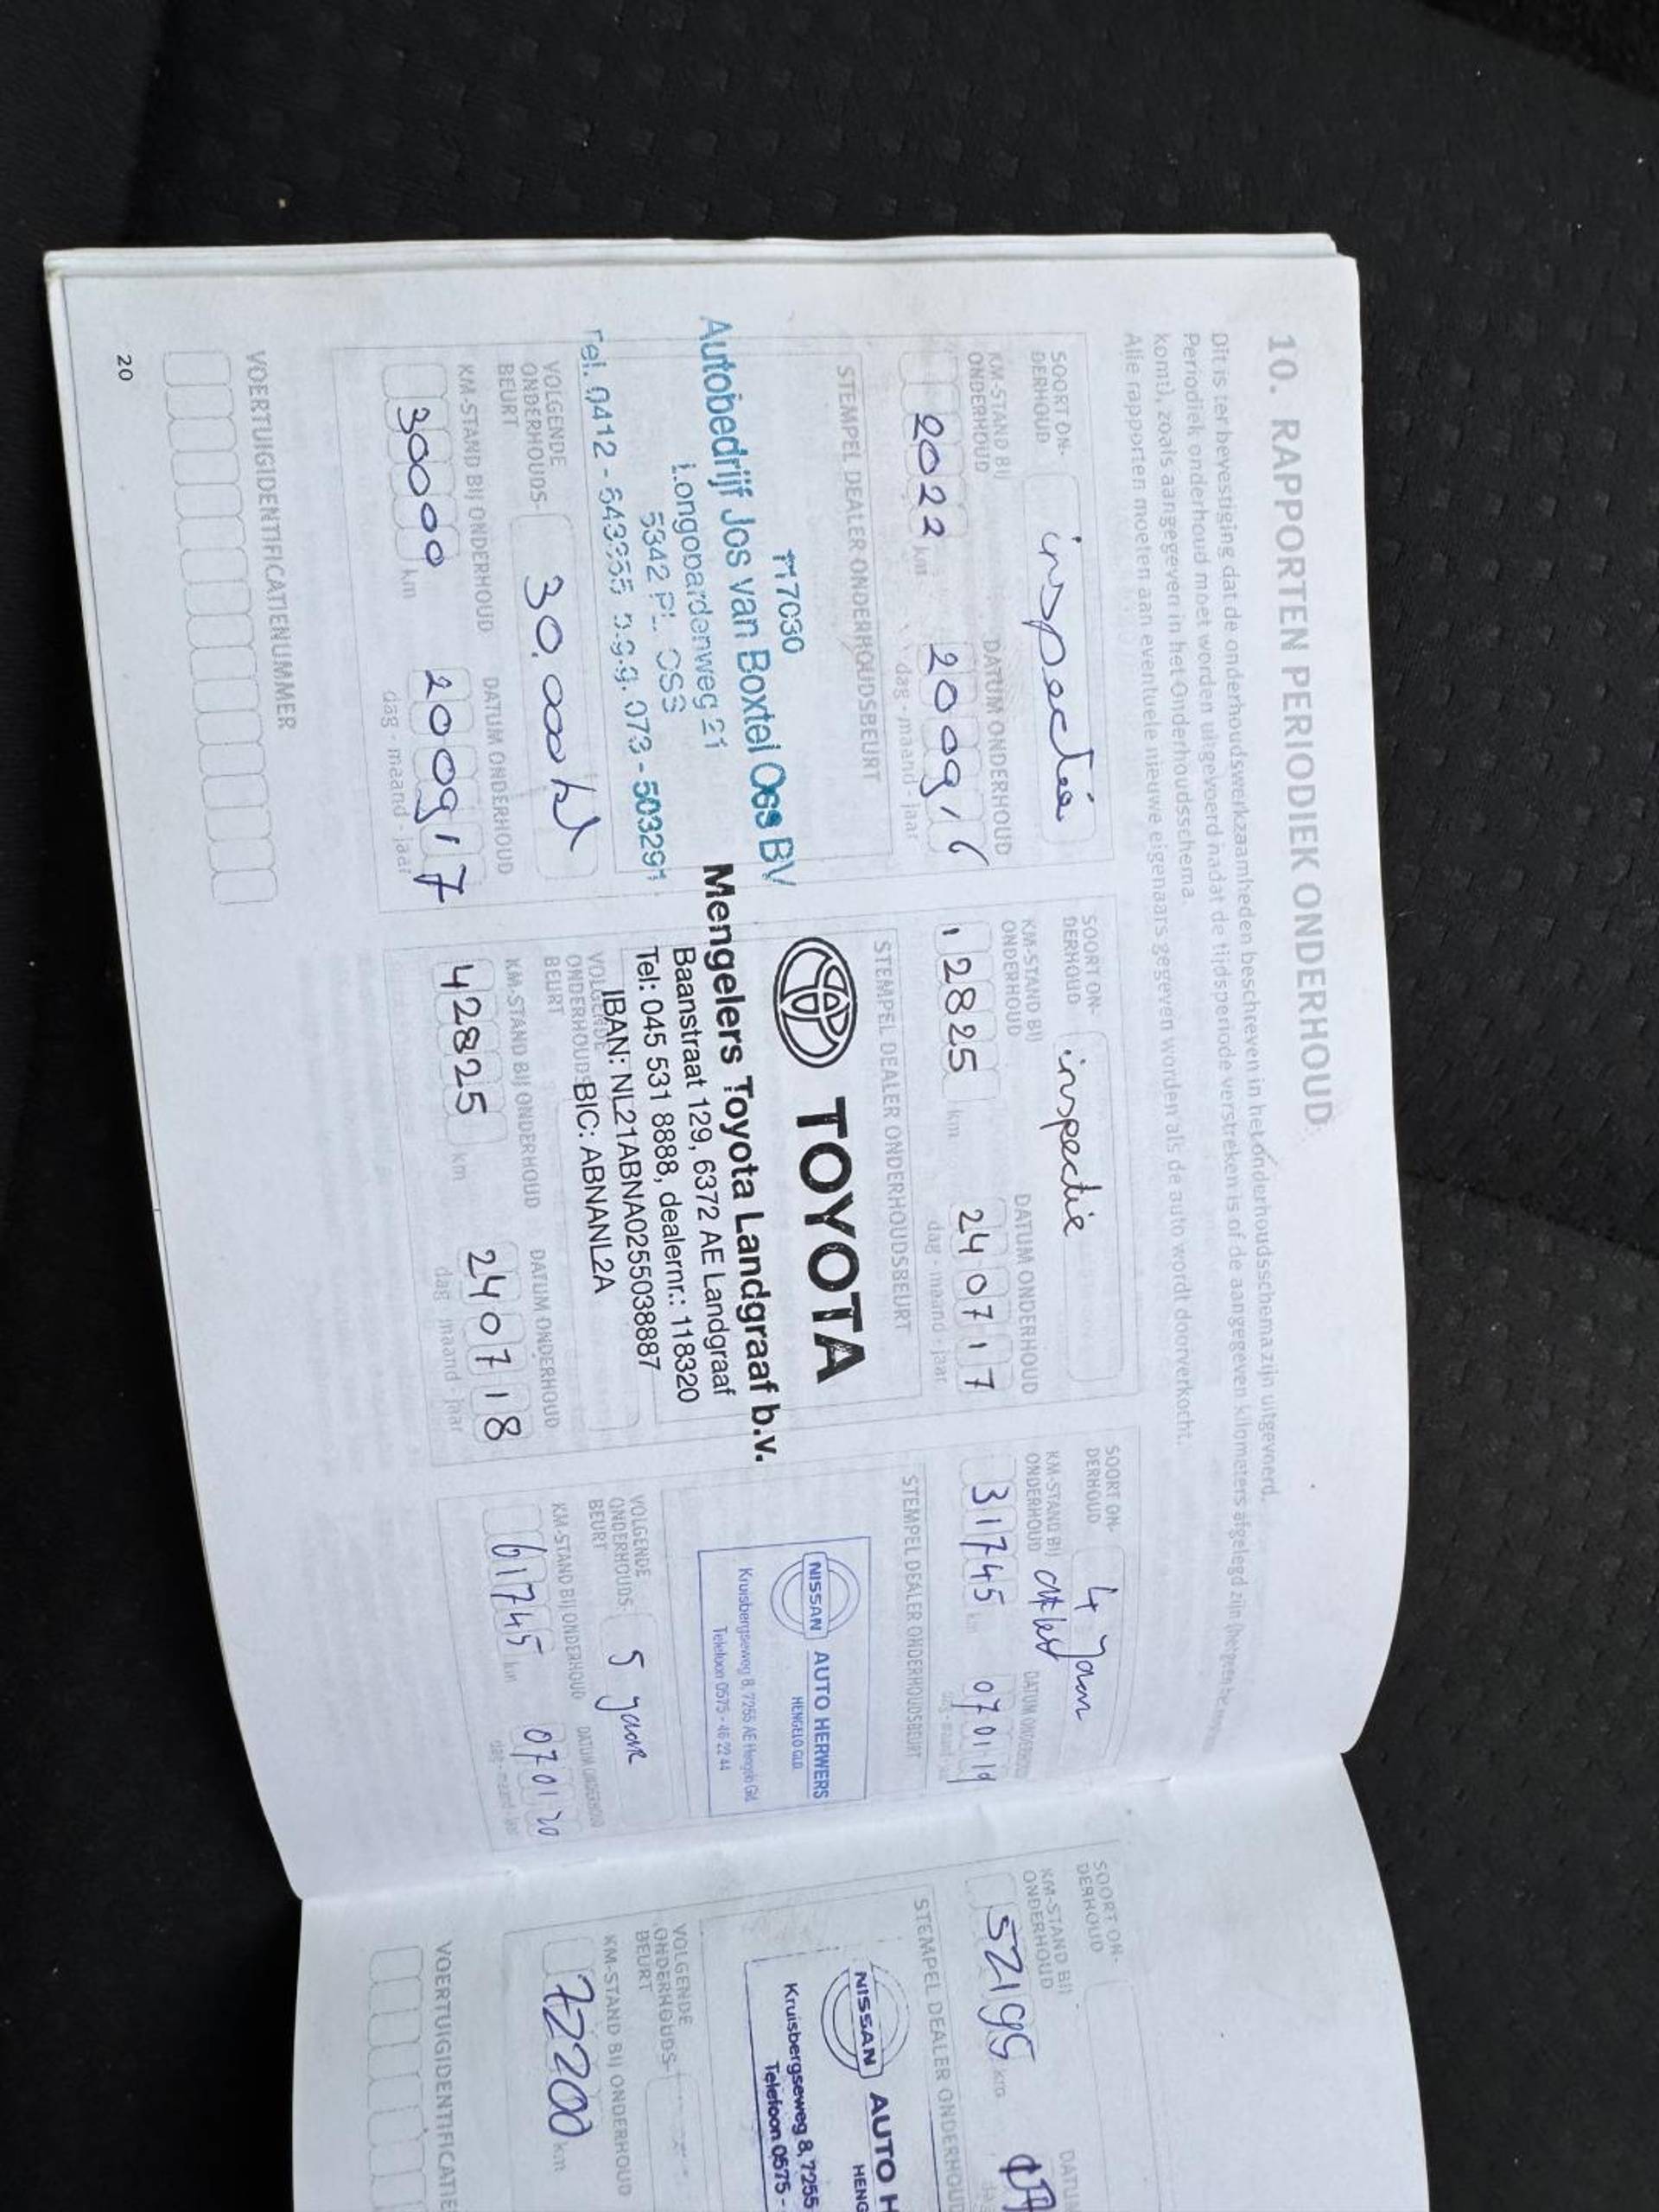 10. RAPPORTEN PERIODIEK ONDERHOUD
Dit is ter bevestiging dat de onderhoudswerkzaamheden beschreven in het onderhoudsschema zijn uitgevoerd.
Periodiek onderhoud moet worden uitgevoerd nadat de tijdsperiode verstreken is of de aangegeven kilometers afgelegd zijn
komt), zoals aangegeven in het Onderhoudsschema.
Alle rapporten moeten aan eventuele nieuwe eigenaars gegeven worden als de auto wordt doorverkocht.
SOORT ON-
DERHOUD
inspectie
KM-STAND BIJ
ONDERHOUD
DATUM ONDERHOUD
2022 km
200916
dag - maand - jaar
STEMPEL DEALER ONDERHOUDSBEURT
117030
Autobedrijf Jos van Boxtel Oss BV
Longobardenweg 21
5342 PL OSS
Tel. 0412 - 073 - 503291
VOLGENDE
ONDERHOUDS-
BEURT
30.000 km
KM-STAND BIJ ONDERHOUD
DATUM ONDERHOUD
30000 km
200917
dag - maand - jaar
SOORT ON-
DERHOUD
inspectie
KM-STAND BIJ
ONDERHOUD
DATUM ONDERHOUD
12825 km
240717
dag - maand - jaar
STEMPEL DEALER ONDERHOUDSBEURT
TOYOTA
Mengelers Toyota Landgraaf b.v.
Baanstraat 129, 6372 AE Landgraaf
Tel: 045 531 8888, dealernr.: 118320
IBAN: NL21ABNA0255038887
BIC: ABNANL2A
VOLGENDE
ONDERHOUDS-
BEURT
KM-STAND BIJ ONDERHOUD
DATUM ONDERHOUD
42825 km
240718
dag - maand - jaar
SOORT ON-
DERHOUD
4 jaar
KM-STAND BIJ
ONDERHOUD
DATUM ONDERHOUD
31745 km
070119
STEMPEL DEALER ONDERHOUDSBEURT
NISSAN AUTO HERWERS
HENGELO GLD.
Kruisbergseweg 8, 7255 AE Hengelo Gld.
Telefoon 0575 - 46 22 44
VOLGENDE
ONDERHOUDS-
BEURT
5 jaar
KM-STAND BIJ ONDERHOUD
DATUM ONDERHOUD
61745 km
070120
dag - maand - jaar
VOERTUIGIDENTIFICATIENUMMER
20
SOORT ON-
DERHOUD
KM-STAND BIJ
ONDERHOUD
DATUM
52195 km
STEMPEL DEALER ONDERHOUD
NISSAN AUTO H
HENG
Kruisbergseweg 8, 7255
Telefoon 0575 -
VOLGENDE
ONDERHOUDS-
BEURT
KM-STAND BIJ ONDERHOUD
72200 km
VOERTUIGIDENTIFICATIE